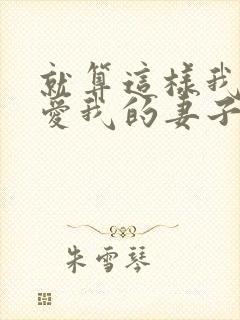 就算這樣我
愛我的妻子
朱雪琴